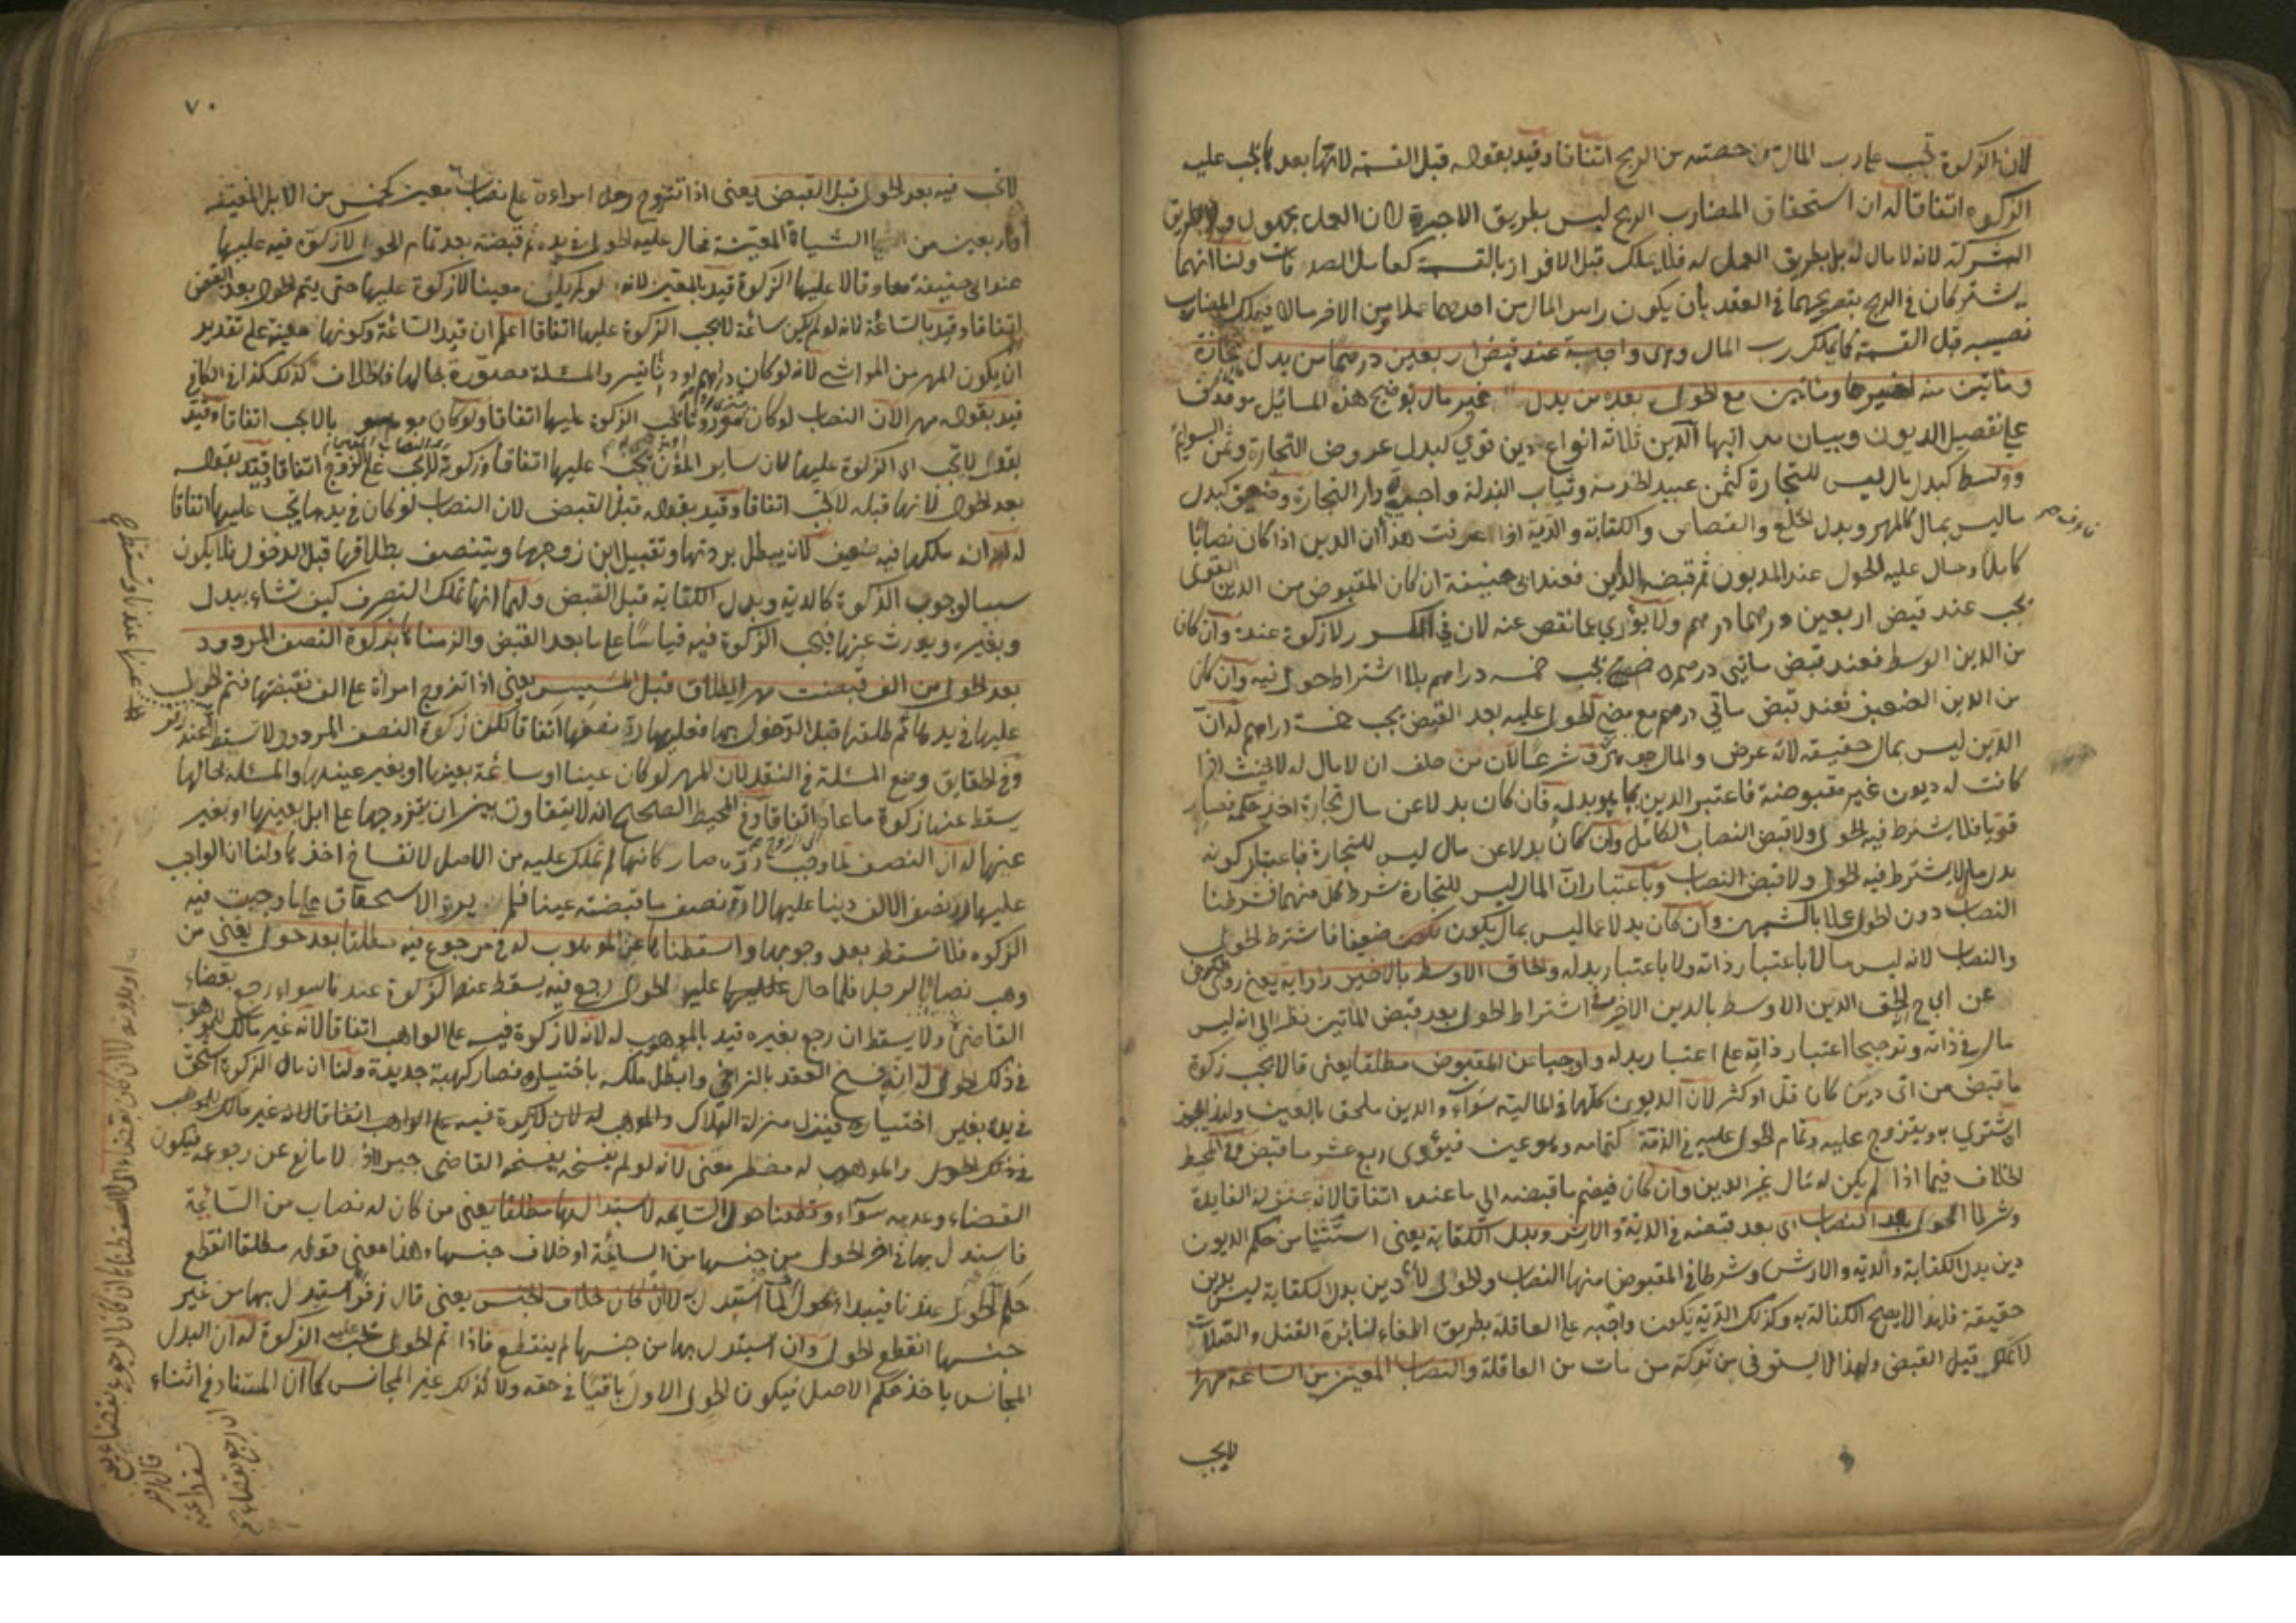 لان الزكوة تجب على رب المال من حصته من الربح اتفاقا وقيد بقوله قبل القسمة لانها بعدها تجب عليه
الزكوة اتفاقا له ان استحقاق المضارب الربح ليس بطريق الاجرة لان العمل مجهول ولا بطريق
الشركة لانه لا مال له بل بطريق العمل له فلا يملك قبل الافراز بالقسمة كعامل الصدقات ولنا انهما
يشتركان في الربح بتصريحهما في العقد بان يكون راس المال من احدهما عملا من الاخر مالا فيملك المضارب
نصيبه قبل القسمة كما يملك رب المال وهي واجبة عند قبض اربعين درهما من بدل تجارة
ومأتين منه لغيرها ومأتين مع الحول بعده من بدل غير مال توضيح هذه المسائل موقوف
على تفصيل الديون وبيان مراتبها الدين ثلاثة انواع دين قوي كبدل عروض التجارة وثمن السوائم
ووسط كبدل مال ليس للتجارة كثمن عبيد الخدمة وثياب البذلة واجرة دار التجارة وضعيف كبدل
ما ليس بمال كالمهر وبدل الخلع والقصاص والكتابة والدية اذا عرفت هذا ان الدين اذا كان نصابا
كاملا وحال عليه الحول عند المديون ثم قبضه الداين فعند ابي حنيفة ان كان المقبوض من الدين القوي
يجب عند قبض اربعين درهما درهم ولا يؤدي عما نقص عنه لان في الكسور لا زكوة عنده وان كان
من الدين الوسط فعند قبض مأتي درهم يجب خمسة دراهم بلا اشتراط حول فيه وان كان
من الدين الضعيف فعند قبض مأتي درهم مع مضي الحول عليه بعد القبض يجب خمسة دراهم له ان
الدين ليس بمال حقيقة لانه عرض والمال جوهر وشرعا لان من حلف ان لا مال له لا يحنث اذا
كانت له ديون غير مقبوضة فاعتبر الدين بما هو بدله فان كان بدلا عن مال تجارة اخذ حكمه فصار
قويا فلا يشترط فيه الحول ولا قبض النصاب الكامل وان كان بدلا عن مال ليس للتجارة فباعتبار كونه
بدل مال لا يشترط فيه الحول ولا قبض النصاب وباعتبار ان المال ليس للتجارة شرط كل منهما فشرطنا
النصاب دون الحول عملا بالشبهين وان كان بدلا عما ليس بمال يكون ضعيفا فاشترط الحول
والنصاب لانه ليس مالا باعتبار ذاته ولا باعتبار بدله والحاق الاوسط بالاخير رواية يعني روى الكرخي
عن ابي ح الحق الدين الاوسط بالدين الاخير في اشتراط الحول بعد قبض المأتين نظرا الى انه ليس
مال في ذاته وترجيحا اعتبار ذاته على اعتبار بدله واوجبا عن المقبوض مطلقا يعني قالا يجب زكوة
ما قبض من اي دين كان قل او كثر لان الديون كلها في المالية سواء والدين ملحق بالعين ولهذا يجوز
ان يشتري به ويتزوج عليه وتمام الحول عليه في الذمة كتمامه وهو عين فيؤدي ربع عشر ما قبض وفي المحيط
الخلاف فيما اذا لم يكن له مال غير الدين وان كان فيضم ما قبضه الى ما عنده اتفاقا لانه عنزلة الفايدة
وشرطا الحول بعد النصاب اي بعد قبضه في الدية والارش وبدل الكتابة يعني استثنيا من حكم الديون
دين بدل الكتابة والدية والارش وشرطا في المقبوض منها النصاب والحول لان دين بدل الكتابة ليس بدين
حقيقة فلهذا لا يصح الكفالة به وكذلك الدية يكون واجبه على العاقلة بطريق اطفاء لنائرة القتل والصلات
لا تملك قبل القبض ولهذا لا يستوفى من تركة من مات من العاقلة والنصاب المعين من السائمة مهرا
لا يجب
٧٠
لا يجب فيه بعد الحول قبل القبض يعني اذا تزوج رجل امراءة على نصاب معين كخمس من الابل المعينة
او اربعين من الشياة المعينة فحال عليه الحول في يده ثم قبضته بعد تمام الحول لا زكوة فيه عليها
عند ابي حنيفة وقالا عليها الزكوة قيد بالمعين لانه لو لم يكن معينا لا زكوة عليها حتى يتم الحول بعد القبض
اتفاقا وقيد بالسائمة لانه لو لم يكن سائمة لا يجب الزكوة عليها اتفاقا اعلم ان قيد السائمة وكونها معينة على تقدير
ان يكون المهر من المواشي لانه لو كان دراهم او دنانير والمسئلة مصورة بحالها فالخلاف كذلك كذا في الكافي
قيد بقوله مهرا لان النصاب لو كان تجب الزكوة عليها اتفاقا ولو كان لا يجب اتفاقا وقيد
بقوله لا يجب اي الزكوة عليها لان ساير المؤن تجب عليها اتفاقا وزكوة لا تجب على الزوج اتفاقا وقيد بقوله
بعد الحول لانها قبله لا تجب اتفاقا وقيد بقوله قبل القبض لان النصاب لو كان في يدها يجب عليها اتفاقا
له ان ملكها فيه ضعيف لانه يبطل بردتها وتقبيل ابن زوجها ويتنصف بطلاقها قبل الدخول فلا يكون
سببا لوجوب الزكوة كالدية وبدل الكتابة قبل القبض ولهما انها تملك التصرف كيف تشاء ببدل
وبغيره ويورث عنها فيجب الزكوة فيه قياسا على ما بعد القبض والزمناها بزكوة النصف المردود
بعد الحول من الف قبضت مهرا لطلاق قبل المسيس يعني اذا تزوج امرأة على الف فقبضتها فتم الحول
عليها في يدها ثم طلقها قبل الدخول بها فعليها رد نصفها اتفاقا لكن زكوة النصف المردود لا تسقط عند
وفي الحقايق وضع المسئلة في النقد لان المهر لو كان عينا او سائمة بعينها او بغير عينها والمسئلة بحالها
يسقط عنها زكوة ما عاد اتفاقا وفي المحيط الصحيح انه لا يتفاوت بين ان يتزوجها على ابل بعينها او بغير
عينها له ان النصف لما وجب رده صار كانها لم تملك عليه من الاصل لانفساخ ولنا ان الواجب
عليها رد نصف الالف دينا عليها لا رد نصف ما قبضته عينا فلم يرد الاستحقاق على ما وجبت فيه
الزكوة فلا تسقط بعد وجوبها واسقطناها عن الموهوب له في مرجوع فيه مطلقا بعد حول يعني من
وهب نصابا لرجل فلما حال عليه الحول رجع فيه يسقط عنه الزكوة عندنا سواء رجع بقضاء
القاضي ولا يسقط ان رجع بغيره قيد بالموهوب له لانه لا زكوة فيه على الواهب اتفاقا لانه غير مالك للموهوب
في ذلك الحول له انه فسخ العقد بالتراضي وابطل ملكه باختياره فصار كهبة جديدة ولنا ان مال الزكوة استحق
في يده بغير اختياره فينزل منزلة الهلاك والموهوب له لان لا زكوة فيه على الواهب اتفاقا لانه غير مالك للموهوب
في ذلك الحول والموهوب له مضطر معنى لانه لو لم يفسخه يفسخه القاضي جبرا اذ لا مانع عن رجوعه فيكون
القضاء وعدمه سواء وقطعنا حول السائمة لاستبدالها مطلقا يعني من كان له نصاب من السائمة
فاستبدل بها في اخر الحول من جنسها من السائمة او خلاف جنسها وهذا معنى قوله مطلقا انقطع
حكم الحول عندنا فيبداء بحول لما استبدل به لا ان كان خلاف الجنس يعني قال زفر استبدل بها من غير
جنسها انقطع الحول وان استبدل بها من جنسها لم ينقطع فاذا تم الحول تجب عليه الزكوة له ان البدل
المجانس ياخذ حكم الاصل فيكون الحول الاول باقيا في حقه ولا كذلك غير المجانس كما ان المستفاد في اثناء